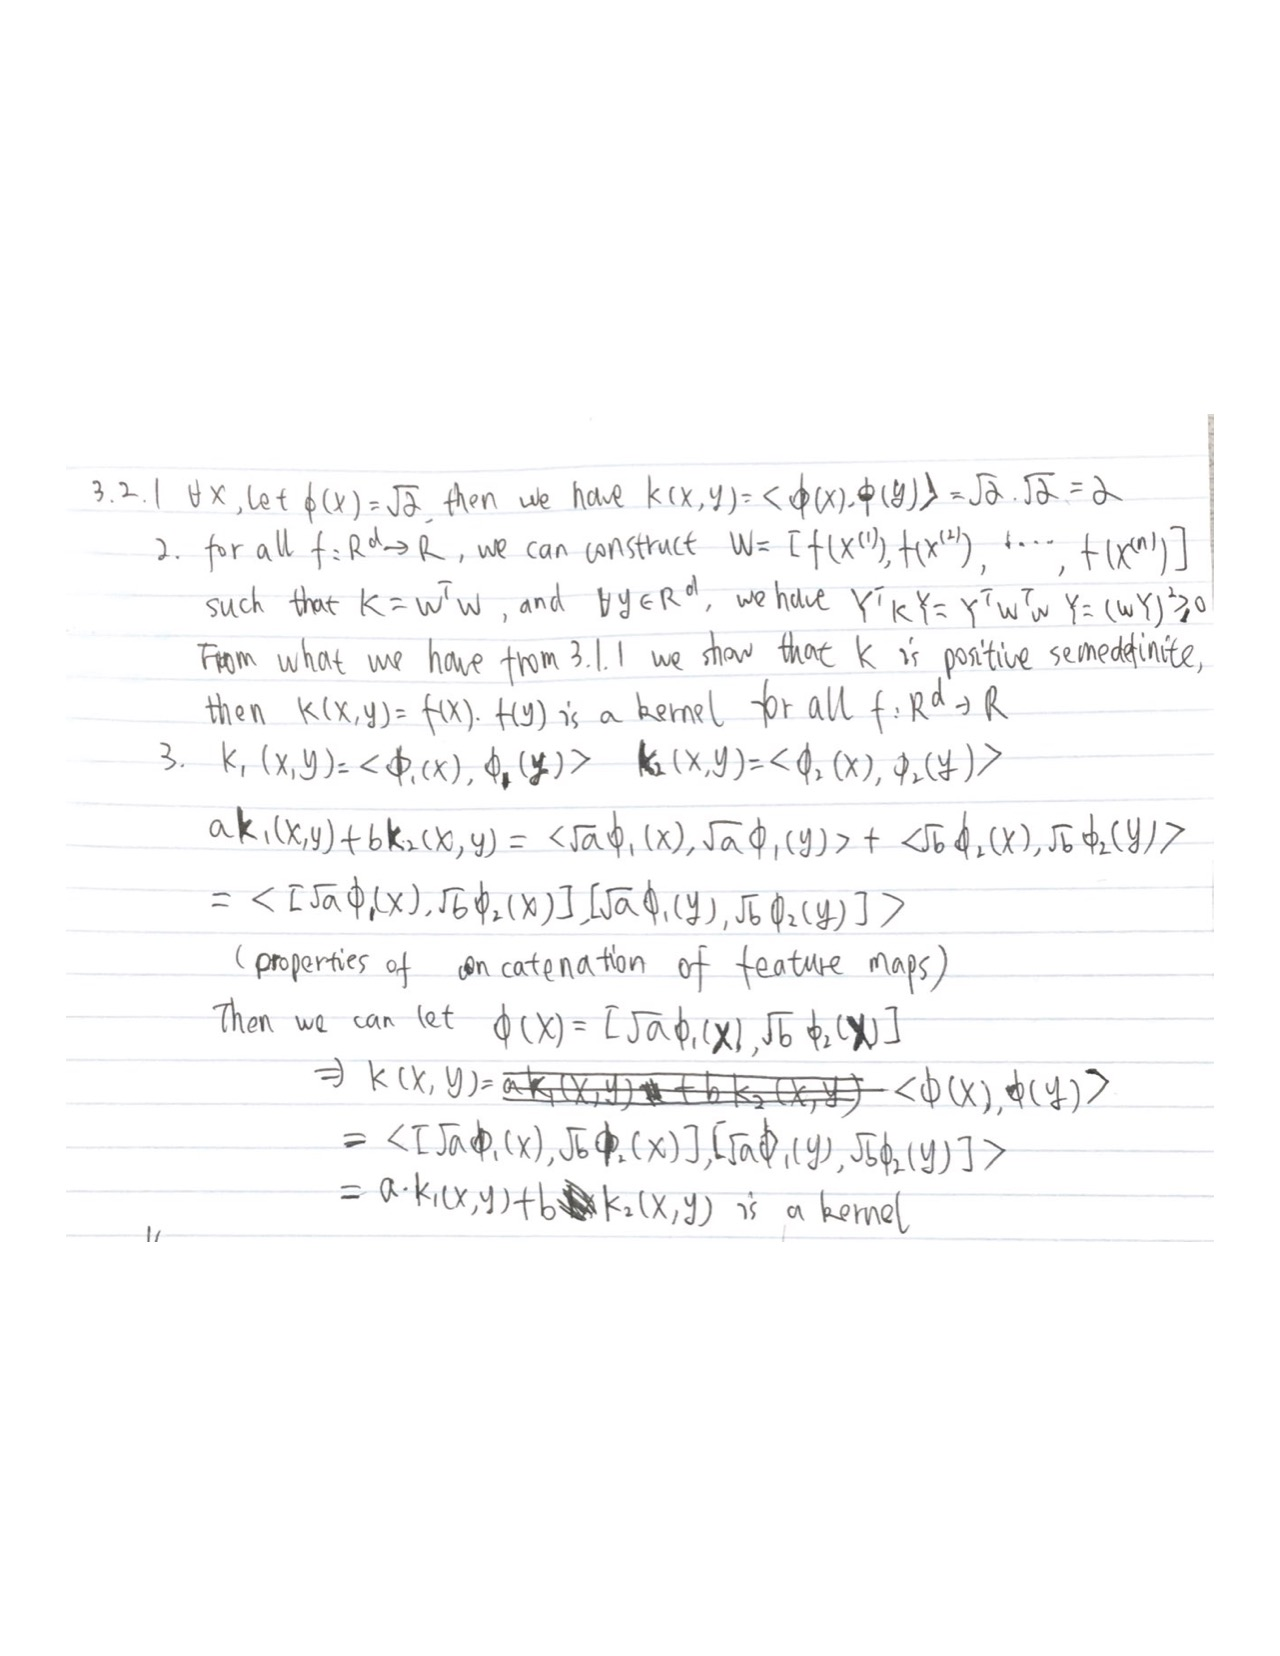 3.2.1 ∀x, let φ(x)=√2, then we have k(x,y)=<φ(x),φ(y)>=√2.√2=2
2. for all f:R^d→R, we can construct W=[f(x^(1)),f(x^(2)),....,f(x^(n))]
such that K=W^TW, and ∀y∈R^d, we have Y^TKY=Y^TW^TWY=(WY)^2≥0
From what we have from 3.1.1 we show that K is positive semedefinite,
then k(x,y)=f(x).f(y) is a kernel for all f:R^d→R
3. k₁(x,y)=<φ₁(x),φ₁(y)> k₂(x,y)=<φ₂(x),φ₂(y)>
ak₁(x,y)+bk₂(x,y)=<√aφ₁(x),√aφ₁(y)>+<√bφ₂(x),√bφ₂(y)>
=<[√aφ₁(x),√bφ₂(x)],[√aφ₁(y),√bφ₂(y)]>
(properties of concatenation of feature maps)
Then we can let φ(x)=[√aφ₁(x),√bφ₂(x)]
⇒ k(x,y)=ak₁(x,y)+bk₂(x,y) <φ(x),φ(y)>
=<[√aφ₁(x),√bφ₂(x)],[√aφ₁(y),√bφ₂(y)]>
=a·k₁(x,y)+b k₂(x,y) is a kernel